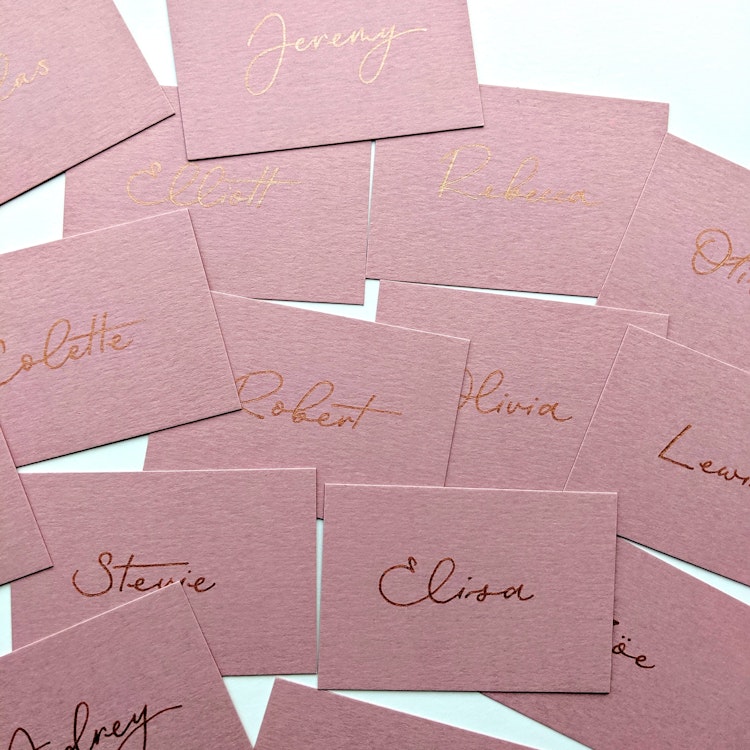 as
Jeremy
Elliott
Rebecca
Colette
Robert
Olivia
Stevie
Elisa